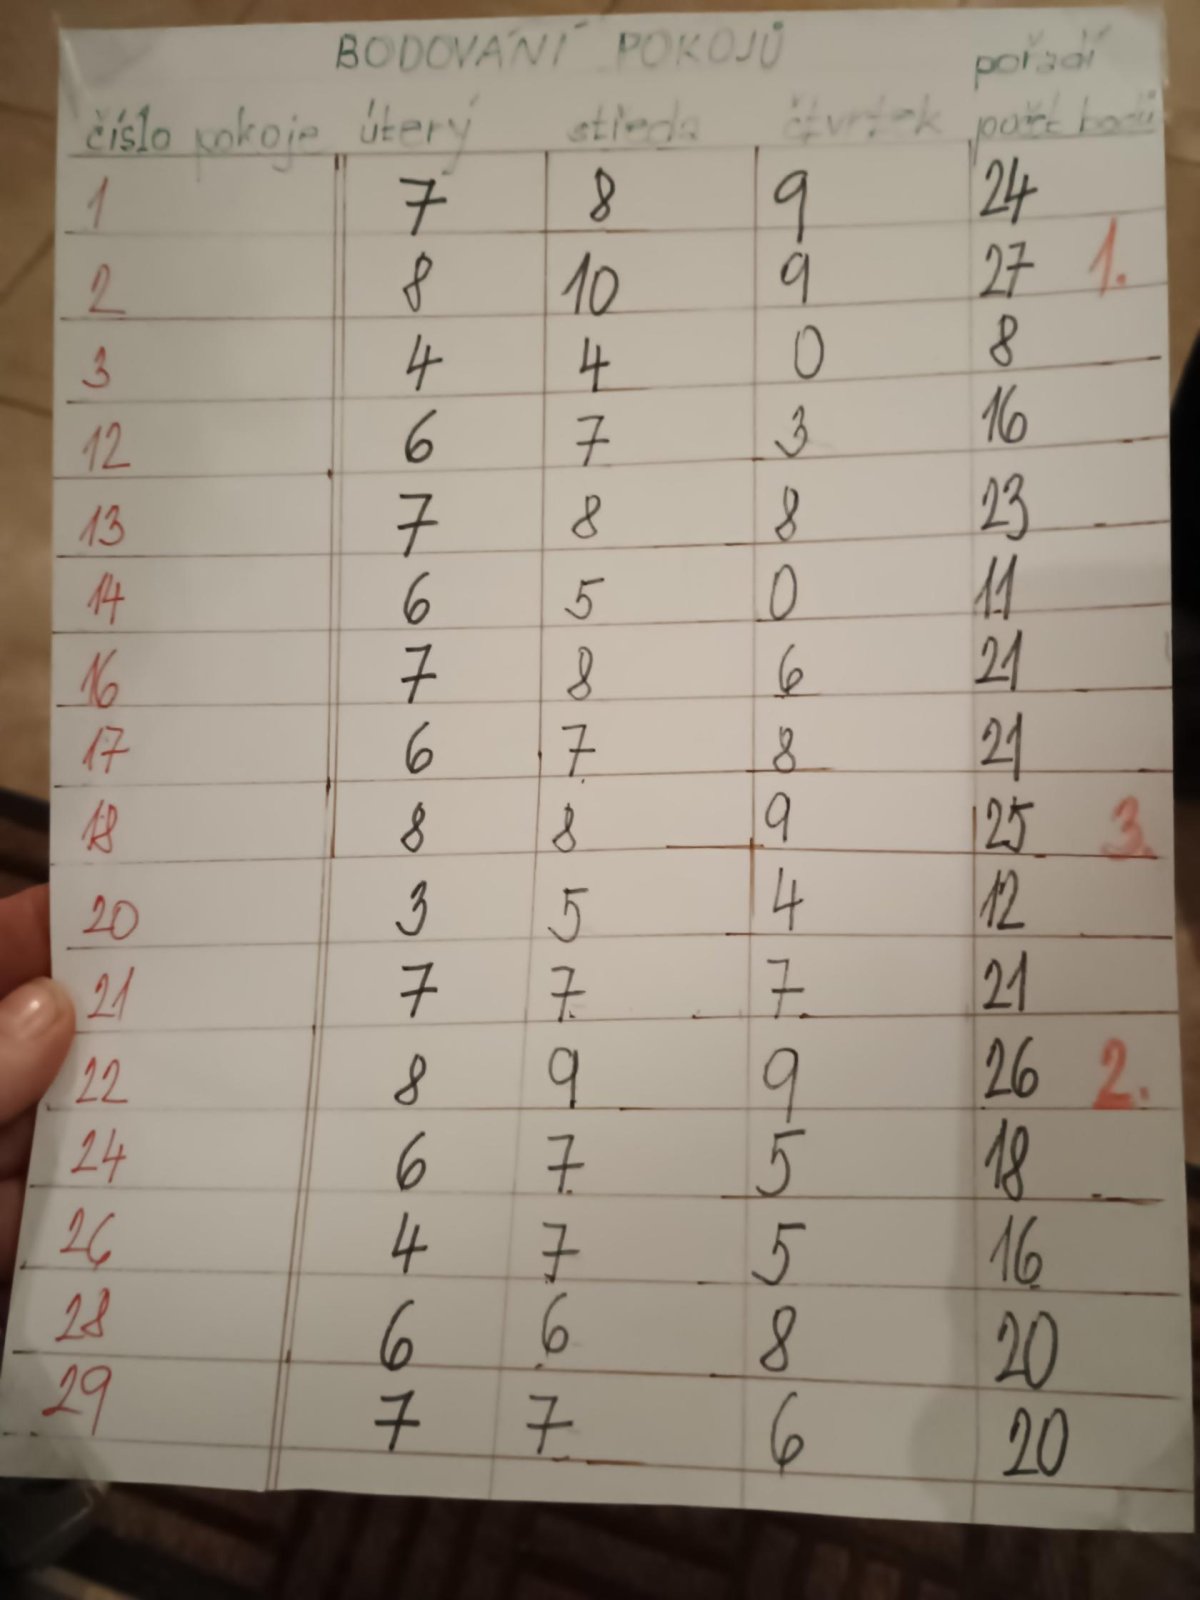 BODOVÁNÍ POKOJŮ pořadí
číslo pokoje úterý středa čtvrtek počet bodů
1 7 8 9 24
2 8 10 9 27 1.
3 4 4 0 8
12 6 7 3 16
13 7 8 8 23
14 6 5 0 11
16 7 8 6 21
17 6 7 8 21
18 8 8 9 25 3.
20 3 5 4 12
21 7 7 7 21
22 8 9 9 26 2.
24 6 7 5 18
26 4 7 5 16
28 6 6 8 20
29 7 7 6 20